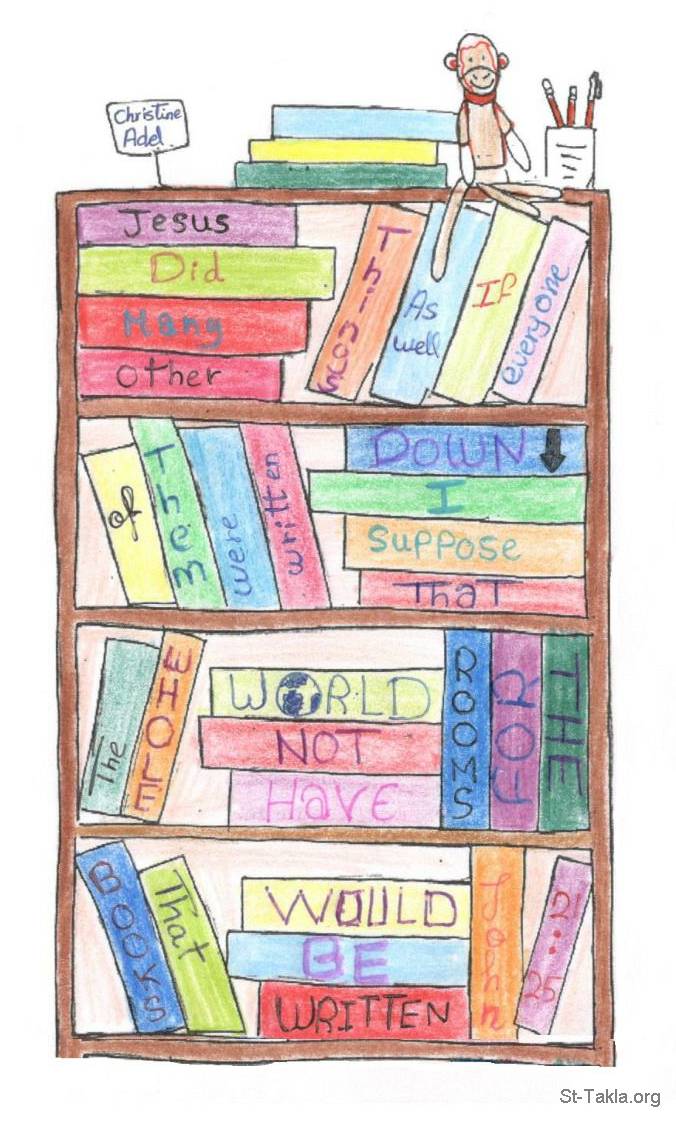 Christine
Adel
Jesus
Did
Many
Other
Things
As
well
If
everyone
of
Them
were
written
DOWN
I
SUPPOSE
THaT
The
WHOLE
WORLD
NOT
HaVE
ROOMS
FOR
THE
BOOKS
That
WOULD
BE
WRITTEN
John
21:25
St-Takla.org